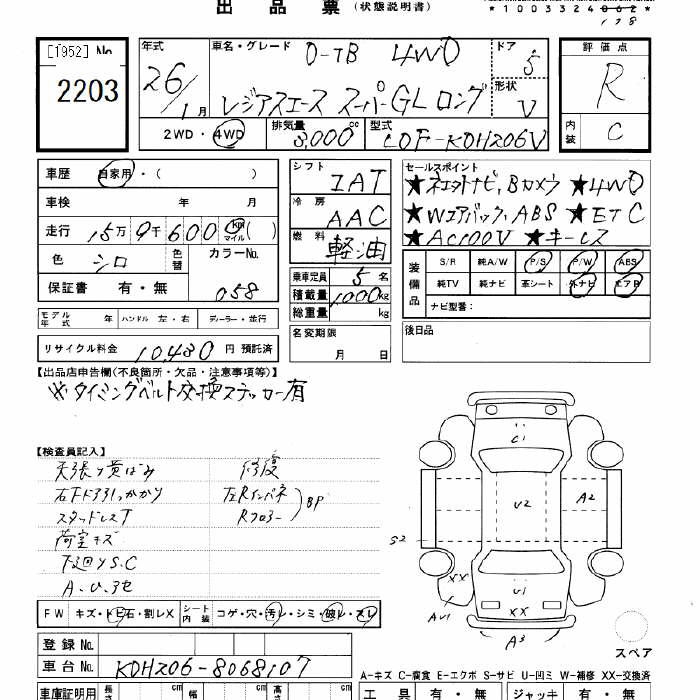 出品票 (状態説明書)
*1003324862*
178
[1952] No. 2203
年式 26/1月
車名・グレード D-TB 4WD
レジアスエース スーパーGL ロング
ドア 5
形状 V
評価点 R
内装 C
2WD・4WD
排気量 3,000 cc
型式 LDF-KDH206V
車歴 自家用・( )
車検 年 月
走行 15万9千600 km マイル ( )
色 シロ 色替 カラーNo. 058
保証書 有・無
シフト IAT
冷房 AAC
燃料 軽油
乗車定員 5名
積載量 1,000kg
総重量 kg
名変期限 月 日
セールスポイント
★ネエタナビ,Bカメラ ★4WD
★Wエアバック,ABS ★ETC
★AC100V ★キーレス
装備品 S/R 純A/W P/S P/W ABS
純TV 純ナビ 革シート 外ナビ エアB
ナビ型番:
後日品
モデル年式 年 ハンドル 左・右 ディーラー・並行
リサイクル料金 10,430 円 預託済
【出品店申告欄(不良箇所・欠品・注意事項等)】
※タイミングベルト交換ステッカー有
【検査員記入】
天張り黄ばみ 修復
右FドアヨリかかりPB
スタッドレスT
左Rインパネ
Rフロアー BP
荷室キズ
下廻りS.C
A.U.ヨセ
C1
U2
A2
S2
XX
U1
XX
AU1
A3
スペア
FW キズ・トビ石・割レX シート内装 コゲ・穴・汚レ・シミ・破レ・スレ
登録No.
車台No. KDH206-8068107
A-キズ C-腐食 E-エクボ S-サビ U-凹ミ W-補修 XX-交換済
車庫証明用 長さ cm 幅 cm 高さ cm
工具 有・無 ジャッキ 有・無